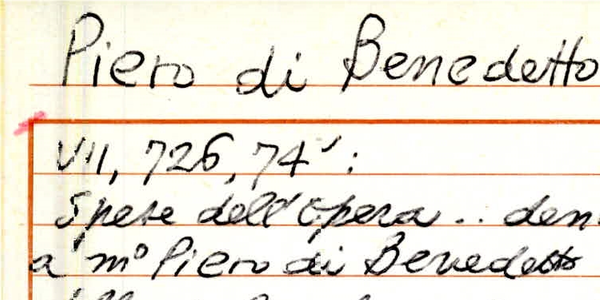 Piero di Benedetto
VII, 726, 74':
Spese dell'Opera .. den
a m° Piero di Benedetto